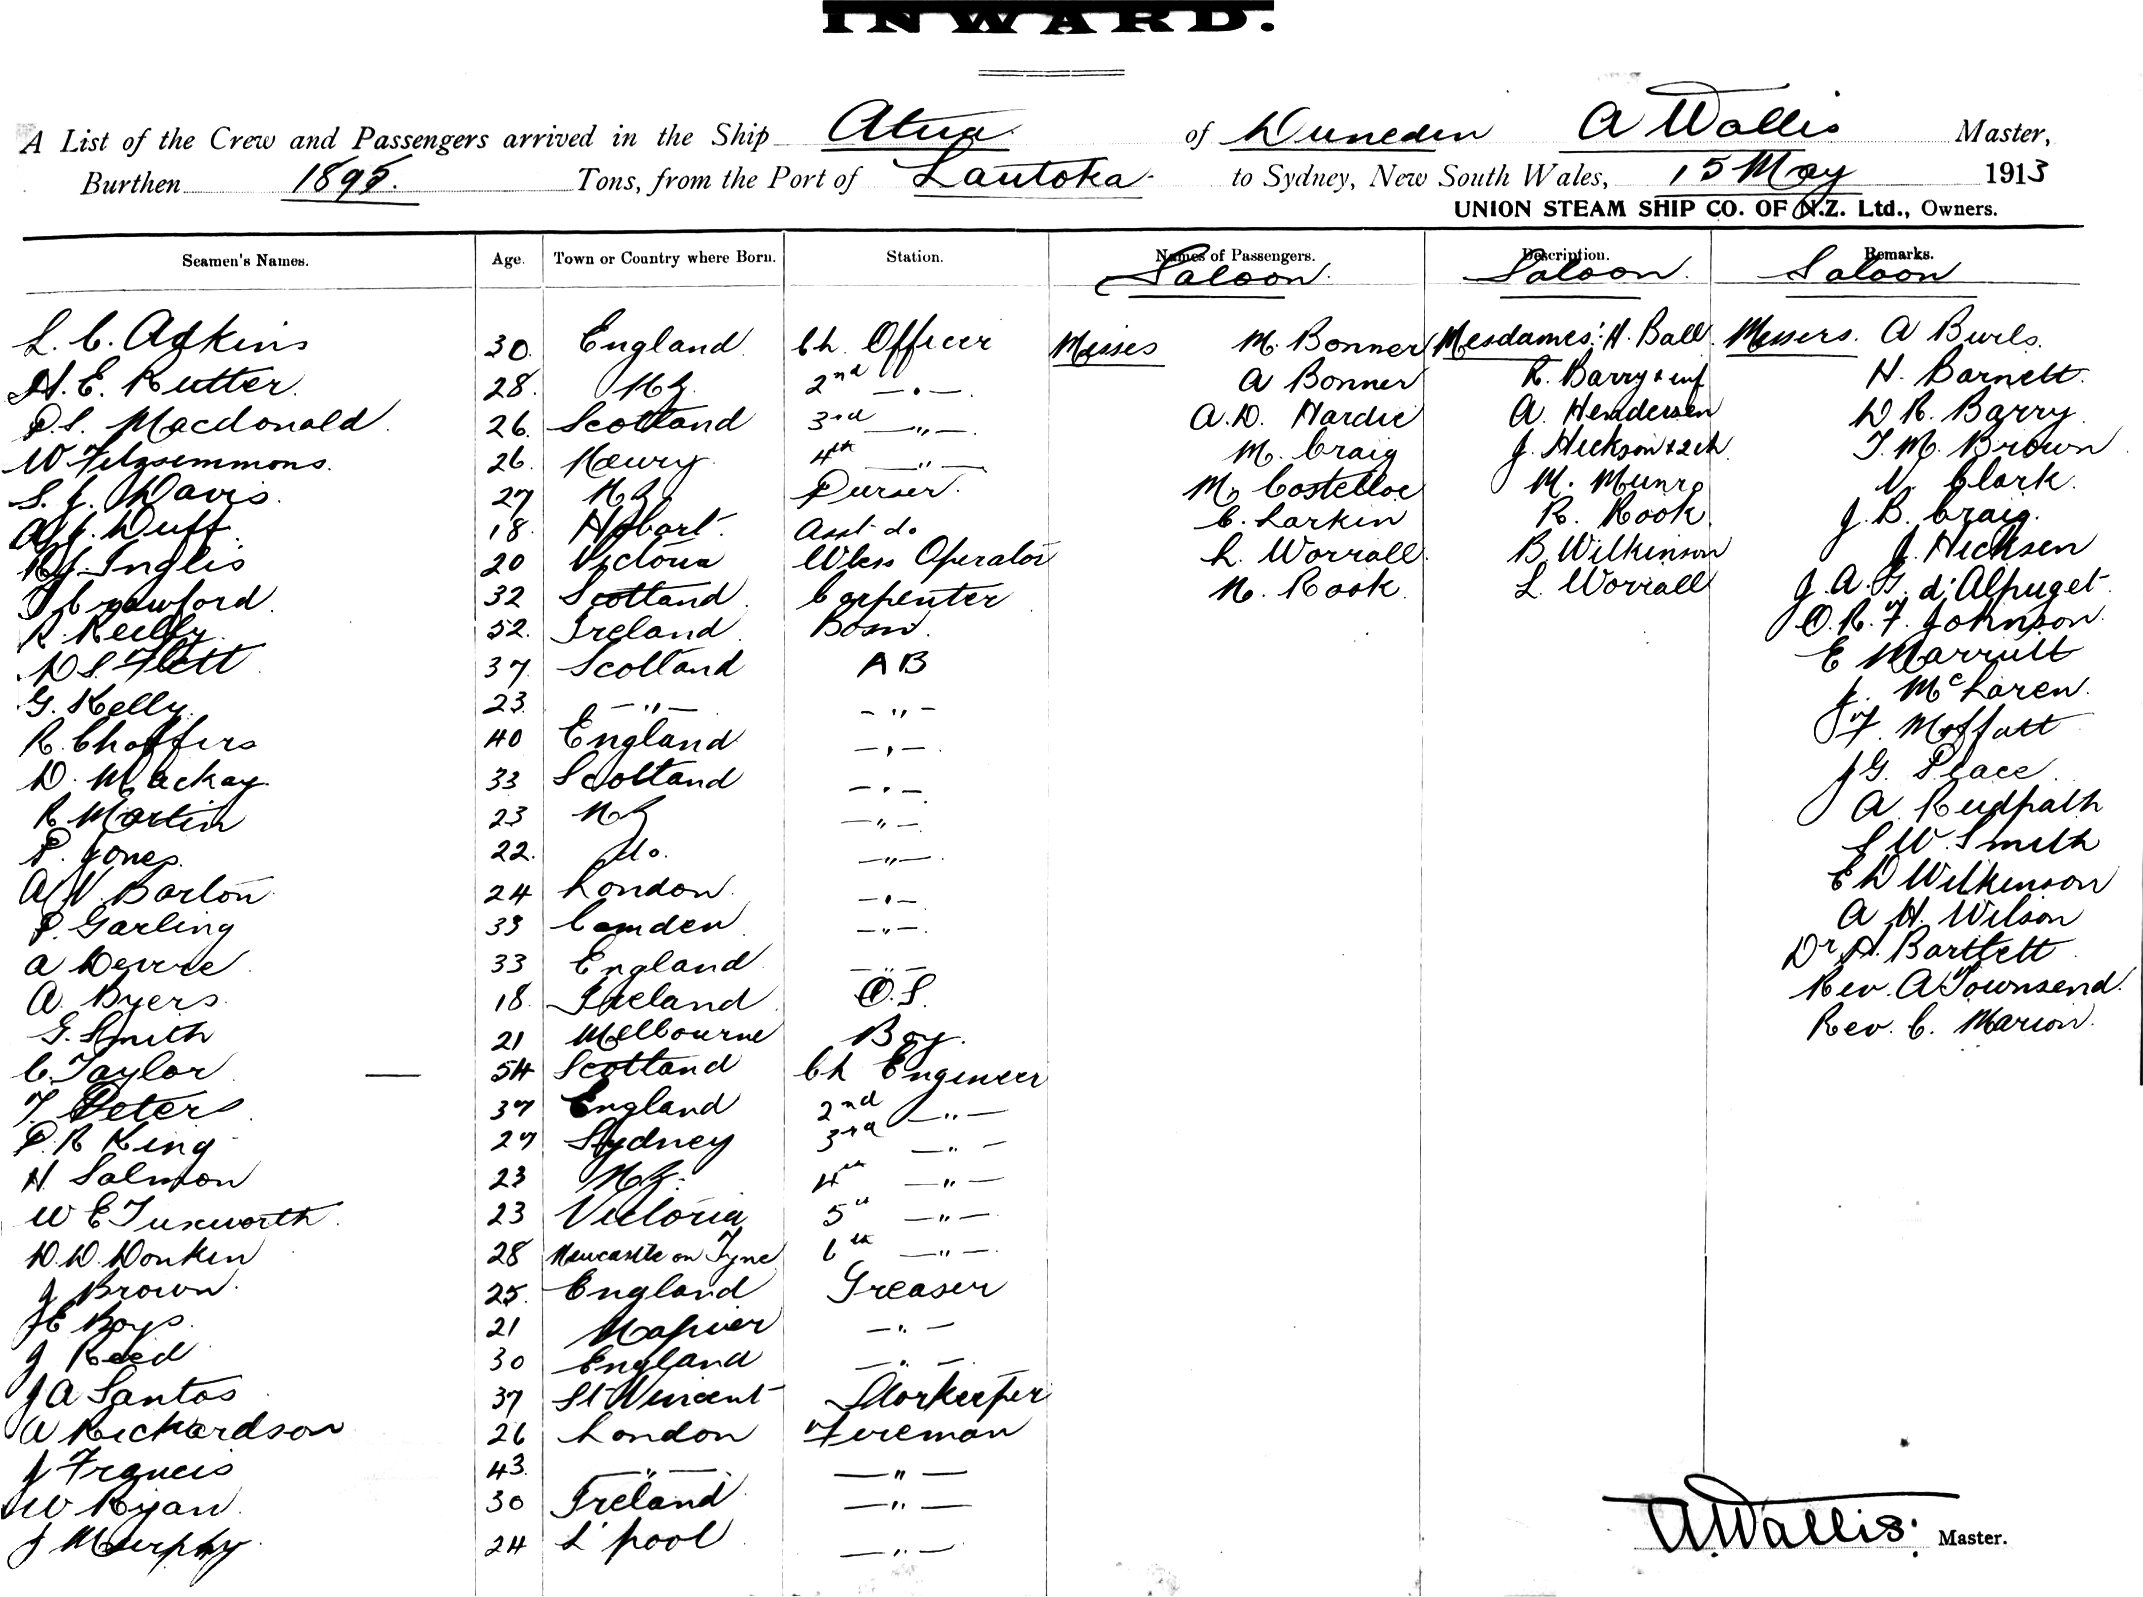 INWARD.
A List of the Crew and Passengers arrived in the Ship Atua of Duneden A Wallis Master,
Burthen 1895. Tons, from the Port of Lautoka to Sydney, New South Wales, 15 May 1913
UNION STEAM SHIP CO. OF N.Z. Ltd., Owners.
Seamen's Names. Age. Town or Country where Born. Station. Names of Passengers. Description. Remarks.
Saloon. Saloon. Saloon
L. C. Adkins 30. England. Ch. Officer Misses M. Bonner Mesdames: H. Ball. Messers. A Burls.
H. E. Rutter. 28. NZ. 2nd — . — A Bonner R. Barry & inf H. Barnett.
D. S. Macdonald. 26. Scotland 3rd — " — A. D. Hardie A. Hendersen D R. Barry.
W Fitzsemmons. 26. Newry. 4th — " — M. Craig J. Hickson & 2 ch T. M. Brown
S. J. Davis. 27 NZ Purser. M. Costelloe M. Munro N. Clark.
A J. Duff. 18. Hobart. Asst do C. Larkin R. Rook J. B. Craig.
R J. Inglis 20 Victoria Wless Operator L. Worrall. B. Wilkinson J. Hicksen
Crawford. 32 Scotland. Carpenter N. Rook. L. Worrall J. A. G. d'Alpuget
R. Reilly. 52. Ireland. Bosn. O. R. F. Johnson.
D S. Flett 37. Scotland A B E Marrutt
G. Kelly. 23. — " — — " — J. McLaren.
R. Chaffers 40 England — " — F. Moffatt
D. Mackay. 33 Scotland — " — J G. Place.
R Martin 23 NZ — " — A Rudpath
P. Jones. 22. do. — " — S W. Smith
A V. Barton 24 London. — " — E D Wilkinson
P. Garling 33 Camden — " — A H. Wilson
A Devere 33 England — " — Dr H. Bartlett
A. Byers. 18. Ireland O. S. Rev. A Townsend.
G. Smith 21 Melbourne Boy. Rev. C. Marion.
C. Taylor — 54 Scotland Ch Engineer
T. Peters 37 England 2nd — " —
P. R King 27 Sydney 3rd — " —
H Salmon 23 NZ. 4th — " —
W E Tuxworth. 23 Victoria 5th — " —
D. D. Donken 28 Newcastle on Tyne 6th — " —
J Brown. 25. England Greaser
J E Boys. 21 Napier — " —
J Reed 30 England — " —
J A Santos 37 St Vincent Storkeeper
A Richardson 26 London Fireman
J Francis 43. — " — — " —
W Ryan 30 Ireland — " —
J Murphy 24 L'pool — " —
A. Wallis. Master.